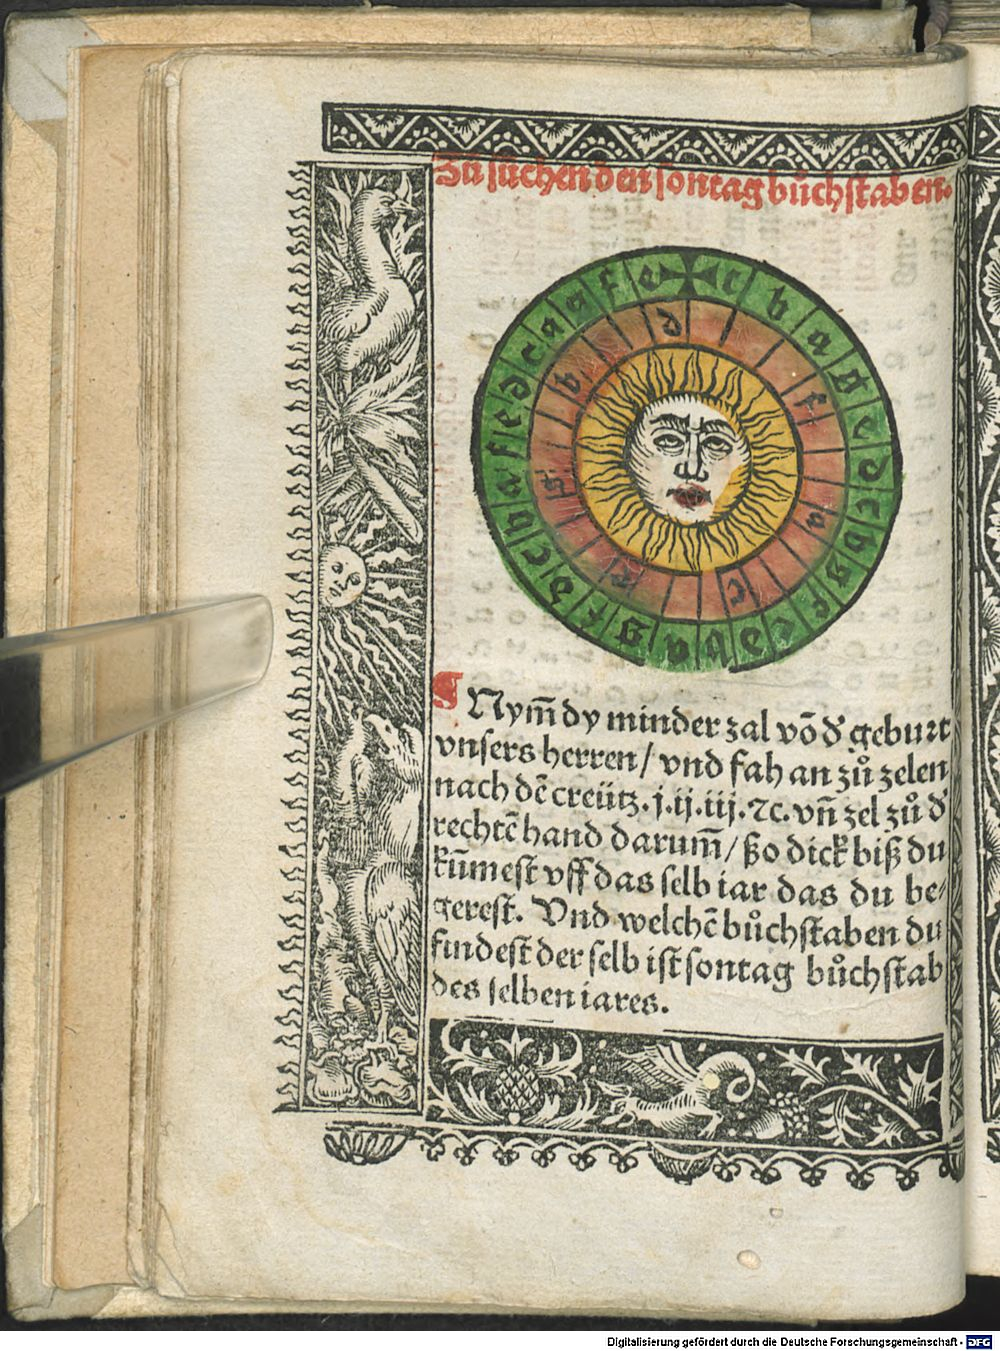 Zů sůchen den sontag bůchstaben.
c b a g e d c b g f e d b a g f d c b a f e d c a a f e
d f a c e g b
¶ Nym̄ dy minder zal vō d' geburt
vnsers herren / vnd fah an zů zelen
nach dē creütz . j . ij . iij . ⁊c. vn̄ zel zů d'
rechtē hand darum̄ / ßo dick biß du
kūmest vff das selb iar das du be⸗
gerest. Vnd welchē bůchstaben du
findest der selb ist sontag bůchstab
des selben iares .
Digitalisierung gefördert durch die Deutsche Forschungsgemeinschaft - DFG